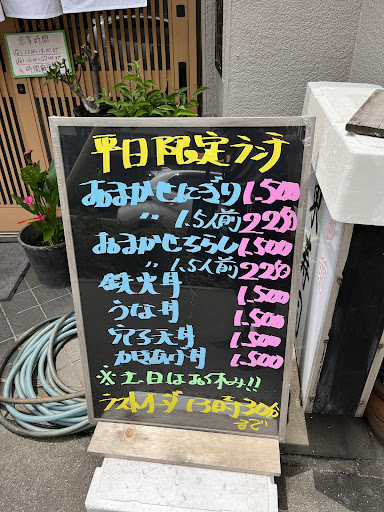 営業時間
平日限定ランチ
おまかせにぎり 1.500
〃 1.5人前 2280
おまかせちらし 1.500
〃 1.5人前 2280
鉄火丼 1.500
うな丼 1.500
穴子天丼 1.500
かきあげ丼 1.500
※土日はお休み!!
ラストオーダー 13時30分
まで